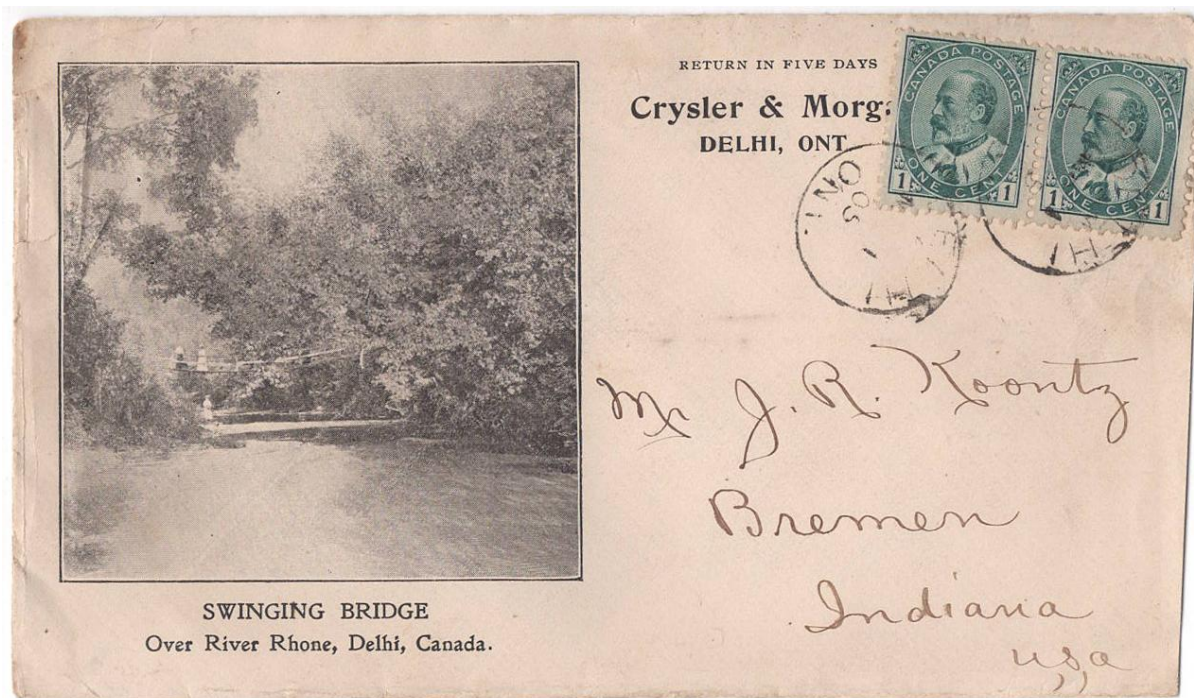 RETURN IN FIVE DAYS
Crysler & Morg
DELHI, ONT
CANADA POSTAGE
1 ONE CENT 1
CANADA POSTAGE
1 ONE CENT 1
ONT
Mr J. R. Koontz
Bremen
Indiana
USA
SWINGING BRIDGE
Over River Rhone, Delhi, Canada.